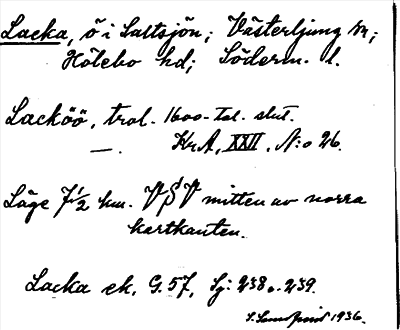 Lacka, ö i Saltsjön; Västerljung sn;
Hölebo hd; Söderm. l.
Lacköö, trol. 1600-tal. slut.
—. Kr A, XXVI, N:o 26.
Läge 7 1/2 km. VSV mitten av norra
kartkanten.
Lacka ek. G. 57, Sj: 238 o. 239.
1936.